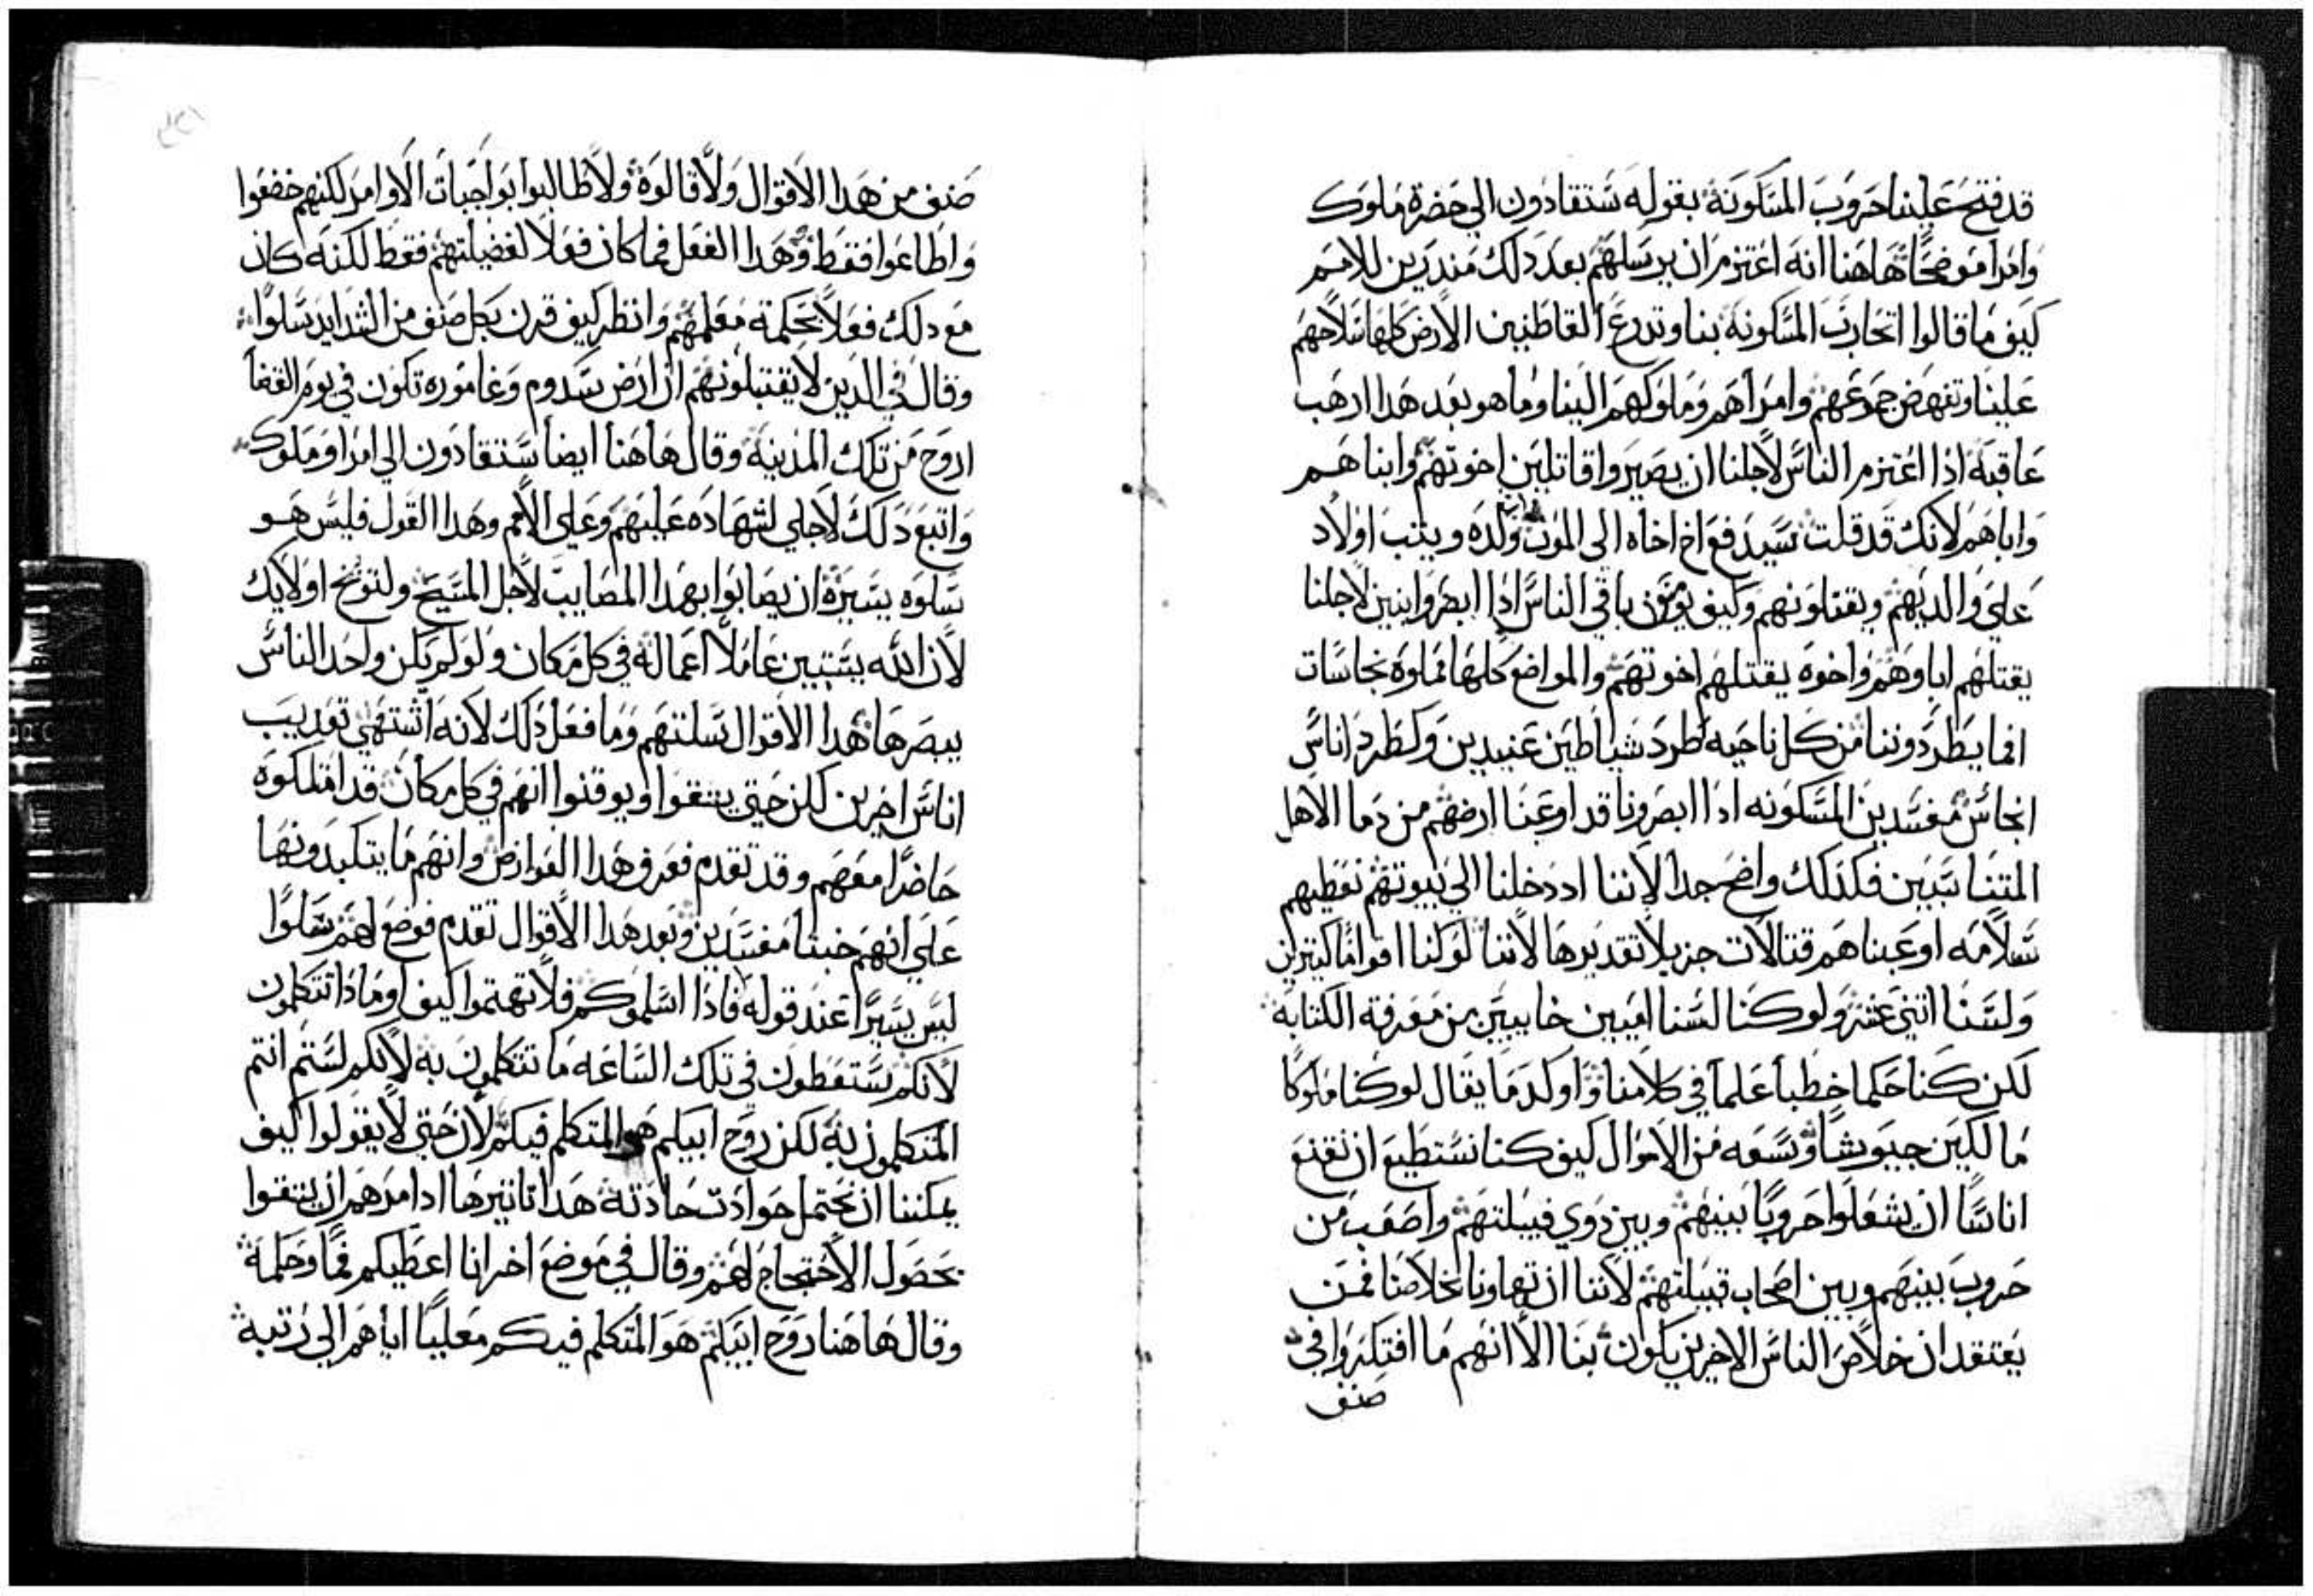 قد فتح علينا حروب المسكونة بقوله ستقادون الي حضرة ملوك
وامرا موضحًا هاهنا انه اعتزم ان يرسلهم بعد دلك مندرين للامم
كيف ما قالوا اتحارب المسكونة بنا وتدرع القاطنين الارض كلها سلاحهم
علينا وتنهض جموعهم وامراهم وملوكهم الينا وما هو بعد هدا ارهب
عاقبة ادا اعتزم الناس لاجلنا ان يصيروا قاتلين اخوتهم وابناهم
واباهم لانك قد قلت سيدفع اخ اخاه الي الموت ولده ويثب اولاد
علي والديهم ويقتلونهم وكيف يومن باقي الناس ادا ابصروا بنين لاجلنا
يقتلهم اباوهم واخوه يقتلهم اخوتهم والمواضع كلها مملوة نجاسات
افما يطردوننا من كل ناحيه طرد شياطين عنيدين وكطرد اناس
انجاس مفسدين المسكونه ادا ابصرونا قد اوعبنا ارضهم من دما الاهل
المتناسبين فكذلك واضح جدا لاننا اد دخلنا الي بيوتهم نعطيهم
سلامه اوعبناهم قتالات جزيلا تقديرها لاننا لو كنا اقوامًا كتيرين
ولسنا اتني عشر ولو كنا لسنا اميين خايبين من معرفة الكتابة
لكن كنا حكما خطبا علما في كلامنا واوكد ما يقال لو كنا ملوكًا
مالكين جيوشا وسعه من الاموال كيف كنا نستطيع ان نقنع
اناسًا ان يشعلوا حروبًا بينهم وبين دوي قبيلتهم واصعب من
حروب بينهم وبين اصحاب قبيلتهم لاننا ان تهاونا بخلاصنا فمن
يعتقد ان خلاص الناس الاخرين يكون بنا الا انهم ما افتكروا في
صنف
صنف من هدا الاقوال ولا قالوة ولا طالبوا بواجبات الاوامر لكنهم خضعوا
واطاعوا فقط وهدا الفعل فما كان فعلا لفضيلتهم فقط لكنه كان
مع دلك فعلا بحكمة معلمهم وانظر كيف قرن بكل صنف من الشدايد سلوا
وقال في الدين لا يقتبلونهم ان ارض سدوم وغاموره تكون في يوم القضا
اروح من تلك المدينة وقال هاهنا ايضا ستقادون الي امرا وملوك
واتبع دلك لاجلي لشهاده عليهم وعلي الامم وهدا القول فليس هو
سلوه يسيرة ان يصابوا بهدا المصايب لاجل المسيح ولتوبخ اولايك
لان الله يستبين عاملا اعماله في كل مكان ولو لم يكن واحد الناس
يبصرها هدا الاقوال سلتهم وما فعل دلك لانه اشتهي تعديب
اناس اخرين لكن حتي يتقوا ويوقنوا انهم في كل مكان قد امتلكوه
حاضرًا معهم وقد تقدم فعرف هدا العوارض وانهم ما يتكبدونها
علي انهم خبتا مفسدين وبعد هدا الاقوال تقدم فوضع لهم سلوًا
ليس يسيرًا عند قوله فاذا اسلموكم فلا تهتموا كيف او ماذا تتكلمون
لانكم ستعطون في تلك الساعه ما تتكلمون به لانكم لستم انتم
المتكلمون به لكن روح ابيكم هو المتكلم فيكم لان حتي لا يقولوا كيف
يمكننا ان نحتمل حوادت حادته هدا تاتيرها ادا امرهم ان يتقوا
بحصول الاحتجاج لهم وقال في موضع اخر انا اعطيكم فمًا وحكمة
وقال هاهنا روح ابيكم هو المتكلم فيكم معليًا اياهم الي رتبة